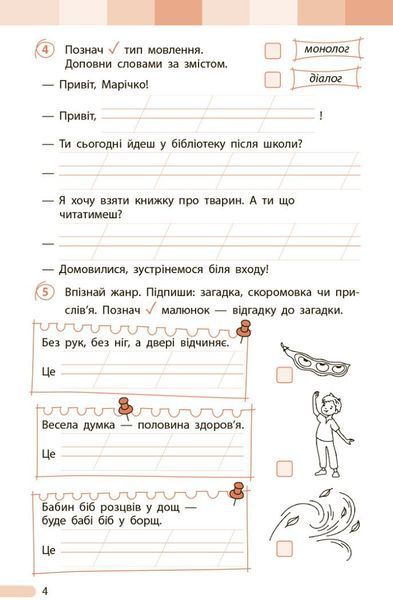 4 Познач ✓ тип мовлення.
монолог
Доповни словами за змістом.
діалог
— Привіт, Марічко!
— Привіт, !
— Ти сьогодні йдеш у бібліотеку після школи?
—
— Я хочу взяти книжку про тварин. А ти що
читатимеш?
—
— Домовилися, зустрінемося біля входу!
5 Впізнай жанр. Підпиши: загадка, скоромовка чи при-
слів'я. Познач ✓ малюнок — відгадку до загадки.
Без рук, без ніг, а двері відчиняє.
Це
Весела думка — половина здоров'я.
Це
Бабин біб розцвів у дощ —
буде бабі біб у борщ.
Це
4